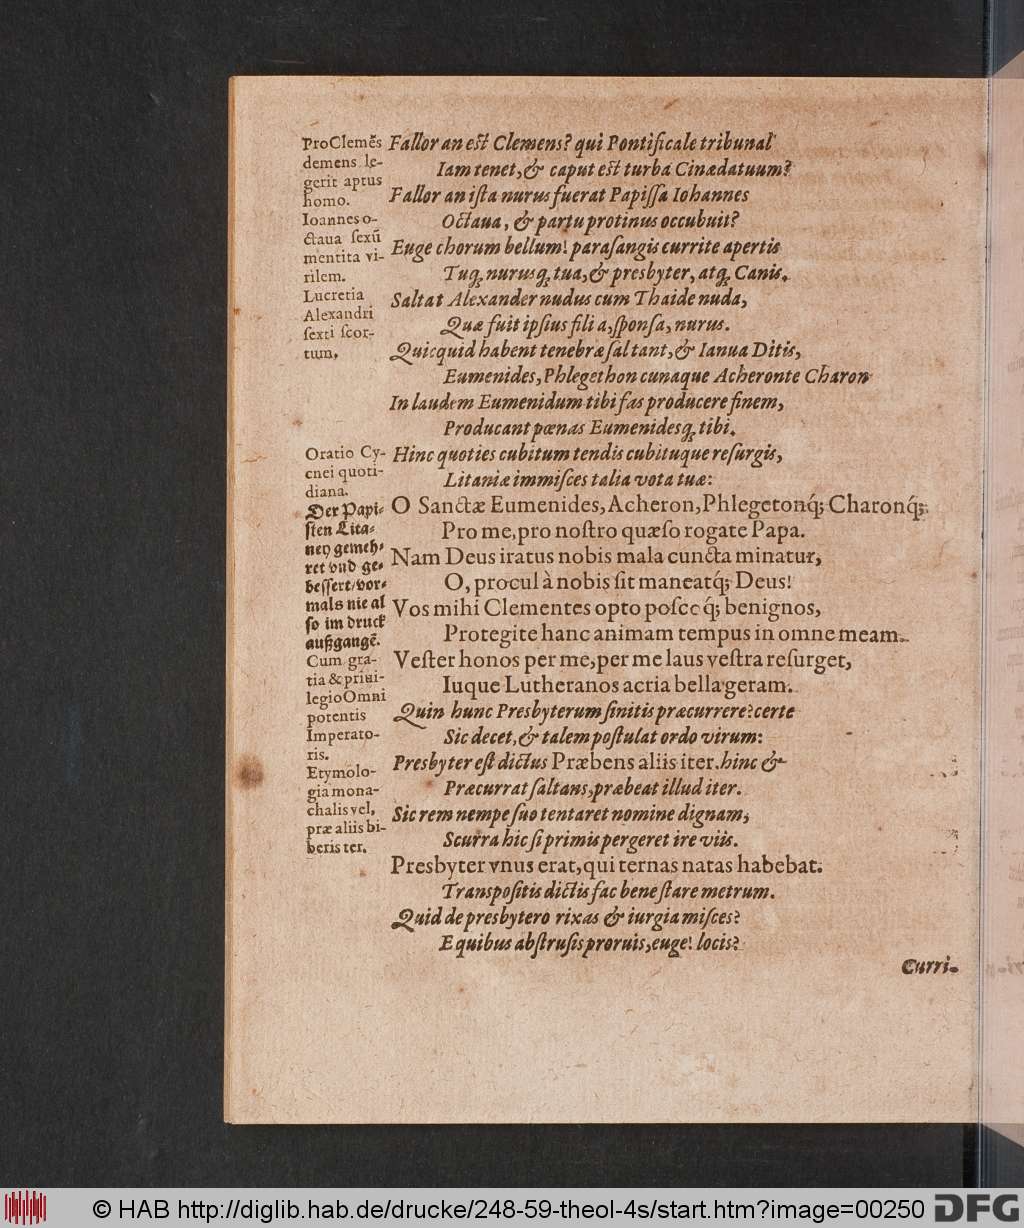 Pro Clemēs
demens le-
gerit aptus
homo.
Ioannes o-
ctaua sexū
mentita vi-
rilem.
Lucretia
Alexandri
sexti scor-
tum.
Oratio Cy-
cnei quoti-
diana.
Der Papi-
sten Lita-
ney gemeh-
ret vnd ge-
bessert/vor-
mals nie al
so im druck
außgangē.
Cum gra-
tia & priui-
legio Omni
potentis
Imperato-
ris.
Etymolo-
gia mona-
chalis vel,
præ aliis bi-
beris ter.
Fallor an est Clemens? qui Pontificale tribunal
Iam tenet, & caput est turba Cinædatuum?
Fallor an ista nurus fuerat Papissa Iohannes
Octaua, & partu protinus occubuit?
Euge chorum bellum! parasangis currite apertis
Tuq; nurusq; tua, & presbyter, atq; Canis.
Saltat Alexander nudus cum Thaide nuda,
Quæ fuit ipsius filia, sponsa, nurus.
Quicquid habent tenebræ saltant, & Ianua Ditis,
Eumenides, Phlegethon cunaque Acheronte Charon
In laudem Eumenidum tibi fas producere finem,
Producant pœnas Eumenidesq; tibi.
Hinc quoties cubitum tendis cubituque resurgis,
Litaniæ immisces talia vota tuæ:
O Sanctæ Eumenides, Acheron, Phlegetonq́; Charonq́;
Pro me, pro nostro quæso rogate Papa.
Nam Deus iratus nobis mala cuncta minatur,
O, procul à nobis sit maneatq́; Deus!
Vos mihi Clementes opto poscoq́; benignos,
Protegite hanc animam tempus in omne meam.
Vester honos per me, per me laus vestra resurget,
Iuque Lutheranos acria bella geram.
Quin hunc Presbyterum sinitis præcurrere? certe
Sic decet, & talem postulat ordo virum:
Presbyter est dictus Præbens aliis iter. hinc &
Præcurrat saltans, præbeat illud iter.
Sic rem nempe suo tentaret nomine dignam,
Scurra hic si primis pergeret ire viis.
Presbyter vnus erat, qui ternas natas habebat.
Transpositis dictis fac bene stare metrum.
Quid de presbytero rixas & iurgia misces?
E quibus abstrusis proruis, euge! locis?
Curri-
© HAB http://diglib.hab.de/drucke/248-59-theol-4s/start.htm?image=00250
DFG